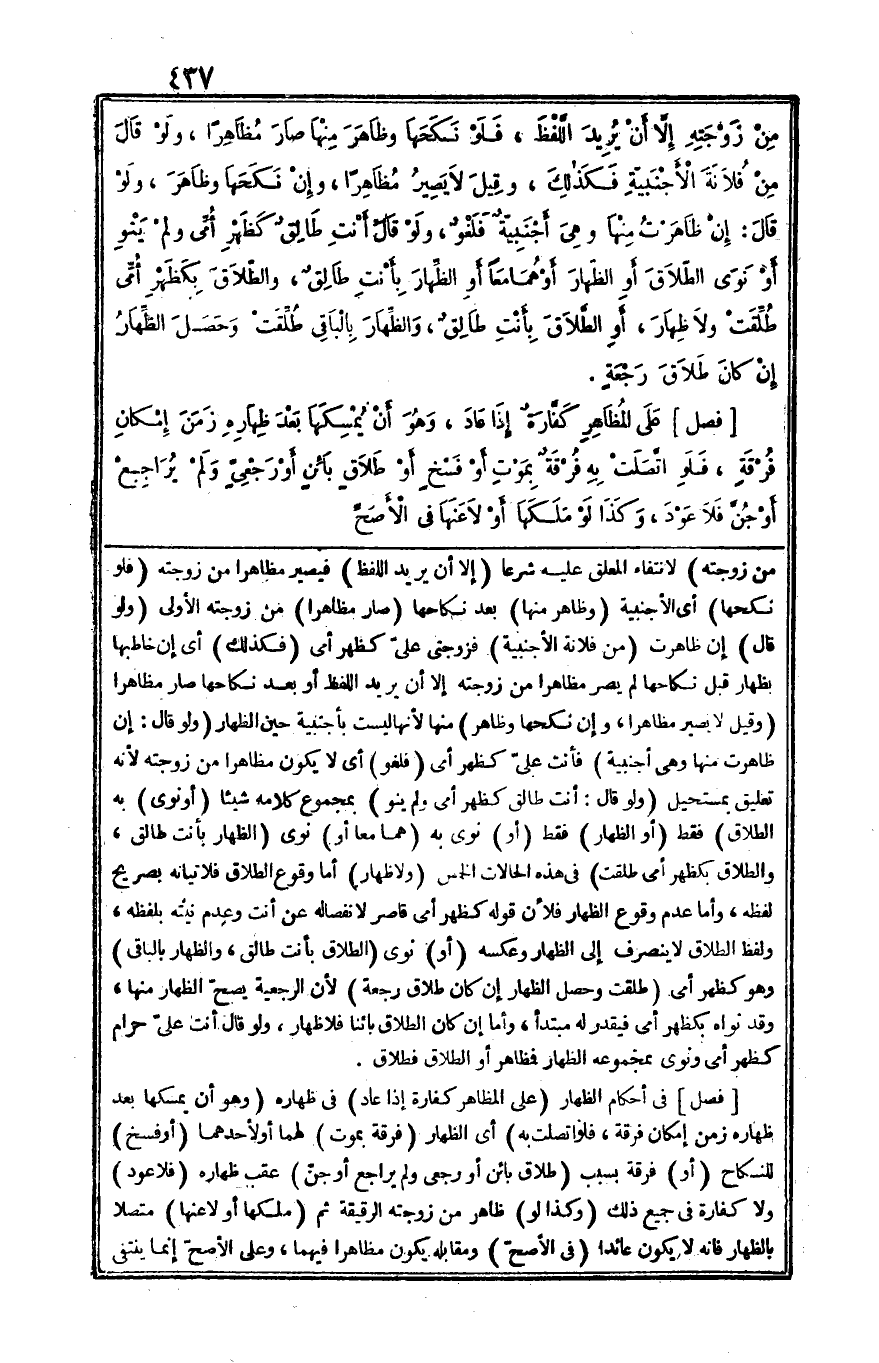 ٤٣٧
مِنْ زَوْجَتِهِ إِلَّا أَنْ يُرِيدَ اللَّفْظَ ، فَلَوْ نَكَحَهَا وظَاهَرَ مِنْهَا صارَ مُظَاهِرًا ، ولَوْ قالَ
مِنْ فُلاَنَةَ الْأَجْنَبِيَّةِ فَكَذٰلِكَ ، وقِيلَ لاَ يَصِيرُ مُظَاهِرًا ، وإِنْ نَكَحَهَا وظَاهَرَ ، ولَوْ
قالَ : إِنْ ظاهَرْتُ مِنْهَا وهِيَ أَجْنَبِيَّةٌ فَلَغْوٌ ، ولَوْ قالَ أَنْتِ طَالِقٌ كَظَهْرِ أُمِّى ولَمْ يَنْوِ
أَوْ نَوَى الطَّلاَقَ أَوِ الظِّهَارَ أَوْ هُمَا مَعًا أَوِ الظِّهارَ بِأَنْتِ طَالِقٌ ، والطَّلاَقَ بِكَظَهْرِ أُمِّى
طُلِّقَتْ ولاَ ظِهارَ ، أَوِ الطَّلاَقَ بِأَنْتِ طَالِقٌ ، وَالظِّهارَ بِالْبَاقِى طُلِّقَتْ وَحَصَلَ الظِّهارُ
إِنْ كانَ طَلاَقَ رَجْعَةٍ .
[ فصل ] عَلَى المُظَاهِرِ كَفَّارَةٌ إِذَا عَادَ ، وَهُوَ أَنْ يُمْسِكَهَا بَعْدَ ظِهارِهِ زَمَنَ إِمْكانِ
فُرْقَةٍ ، فَلَوِ اتَّصَلَتْ بِهِ فُرْقَةٌ بِمَوْتٍ أَوْ فَسْخٍ أَوْ طَلاَقٍ بَائِنٍ أَوْ رَجْعِىٍّ وَلَمْ يُرَاجِعْ
أَوْ جُنَّ فَلاَ عَوْدَ ، وَكَذَا لَوْ مَلَكَهَا أَوْ لاَعَنَهَا فِى الْأَصَحِّ
من زوجته ) لانتفاء المعلق عليه شرعا ( إلا أن يريد اللفظ ) فيصير مظاهرا من زوجته ( فلو
نكحها ) أى الأجنبية ( وظاهر منها ) بعد نكاحها ( صار مظاهرا ) من زوجته الأولى ( ولو
قال ) إن ظاهرت ( من فلانة الأجنبية ) فزوجتى علىّ كظهر أمى ( فكذلك ) أى إن خاطبها
بظهار قبل نكاحها لم يصر مظاهرا من زوجته إلا أن يريد اللفظ أو بعد نكاحها صار مظاهرا
( وقيل لا يصير مظاهرا ، وإن نكحها وظاهر ) منها لأنها ليست بأجنبية حين الظهار ( ولو قال : إن
ظاهرت منها وهى أجنبية ) فأنت علىّ كظهر أمى ( فلغو ) أى لا يكون مظاهرا من زوجته لأنه
تعليق بمستحيل ( ولو قال : أنت طالق كظهر أمى ولم ينو ) بمجموع كلامه شيئا ( أو نوى ) به
الطلاق ) فقط ( أو الظهار ) فقط ( أو ) نوى به ( هما معا أو ) نوى ( الظهار بأنت طالق ،
والطلاق بكظهر أمى طلقت ) فى هذه الحالات الخمس ( ولا ظهار ) أما وقوع الطلاق فلاتيانه بصريح
لفظه ، وأما عدم وقوع الظهار فلأن قوله كظهر أمى قاصر لانفصاله عن أنت وعدم نيته بلفظه ،
ولفظ الطلاق لا ينصرف إلى الظهار وعكسه ( أو ) نوى ( الطلاق بأنت طالق ، والظهار بالباقى )
وهو كظهر أمى ( طلقت وحصل الظهار إن كان طلاق رجعة ) لأن الرجعية يصحّ الظهار منها ،
وقد نواه بكظهر أمى فيقدر له مبتدأ ، وأما إن كان الطلاق بائنا فلا ظهار ، ولو قال أنت علىّ حرام
كظهر أمى ونوى بمجموعه الظهار فظاهر أو الطلاق فطلاق .
[ فصل ] فى أحكام الظهار ( على المظاهر كفارة إذا عاد ) فى ظهاره ( وهو أن يمسكها بعد
ظهاره زمن إمكان فرقة ، فلو اتصلت به ) أى الظهار ( فرقة بموت ) لهما أو لأحدهما ( أو فسخ )
للنكاح ( أو ) فرقة بسبب ( طلاق بائن أو رجعى ولم يراجع أو جنّ ) عقب ظهاره ( فلا عود )
ولا كفارة فى جميع ذلك ( وكذا لو ) ظاهر من زوجته الرقيقة ثم ( ملكها أو لاعنها ) متصلا
بالظهار فانه لا يكون عائدا ( فى الأصحّ ) ومقابله يكون مظاهرا فيهما ، وعلى الأصحّ إنما ينتفى